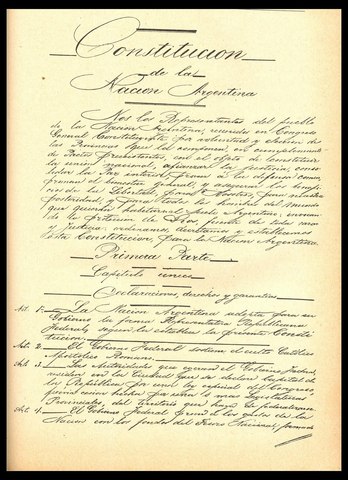 Constitucion
de la
Nacion Argentina
Nos los Representantes del pueblo
de la Nacion Argentina, reunidos en Congreso
General Constituyente por voluntad y eleccion de
las Provincias que la componen, en cumplimiento
de Pactos preexistentes, con el objeto de constituir
la union nacional, afianzar la justicia, conso-
lidar la paz interior, proveer á la defensa comun,
promover el bienestar general, y asegurar los bene-
ficios de la libertad, para nosotros, para nuestra
posteridad, y para todos los hombres del mundo
que quieran habitar el suelo Argentino; invocan-
do la proteccion de Dios, fuente de toda razon
y justicia: ordenamos, decretamos y establecemos
esta Constitucion, para la Nacion Argentina.
Primera Parte
Capitulo único
Declaraciones, derechos y garantias
Art. 1. La Nacion Argentina adopta para su
Gobierno la forma Representativa Republicana
Federal, segun la establece la presente Consti-
tucion
Art. 2. El Gobierno Federal sostiene el culto Católico
Apostólico Romano.
Art. 3. Las Autoridades que ejercen el Gobierno Federal,
residen en la Ciudad que se declare Capital de
la República por una ley especial del Congreso,
previa cesion hecha por una ó mas Legislaturas
Provinciales, del territorio que haya de federalizarse
Art. 4. El Gobierno Federal provee á los gastos de la
Nacion con los fondos del Tesoro Nacional, formado